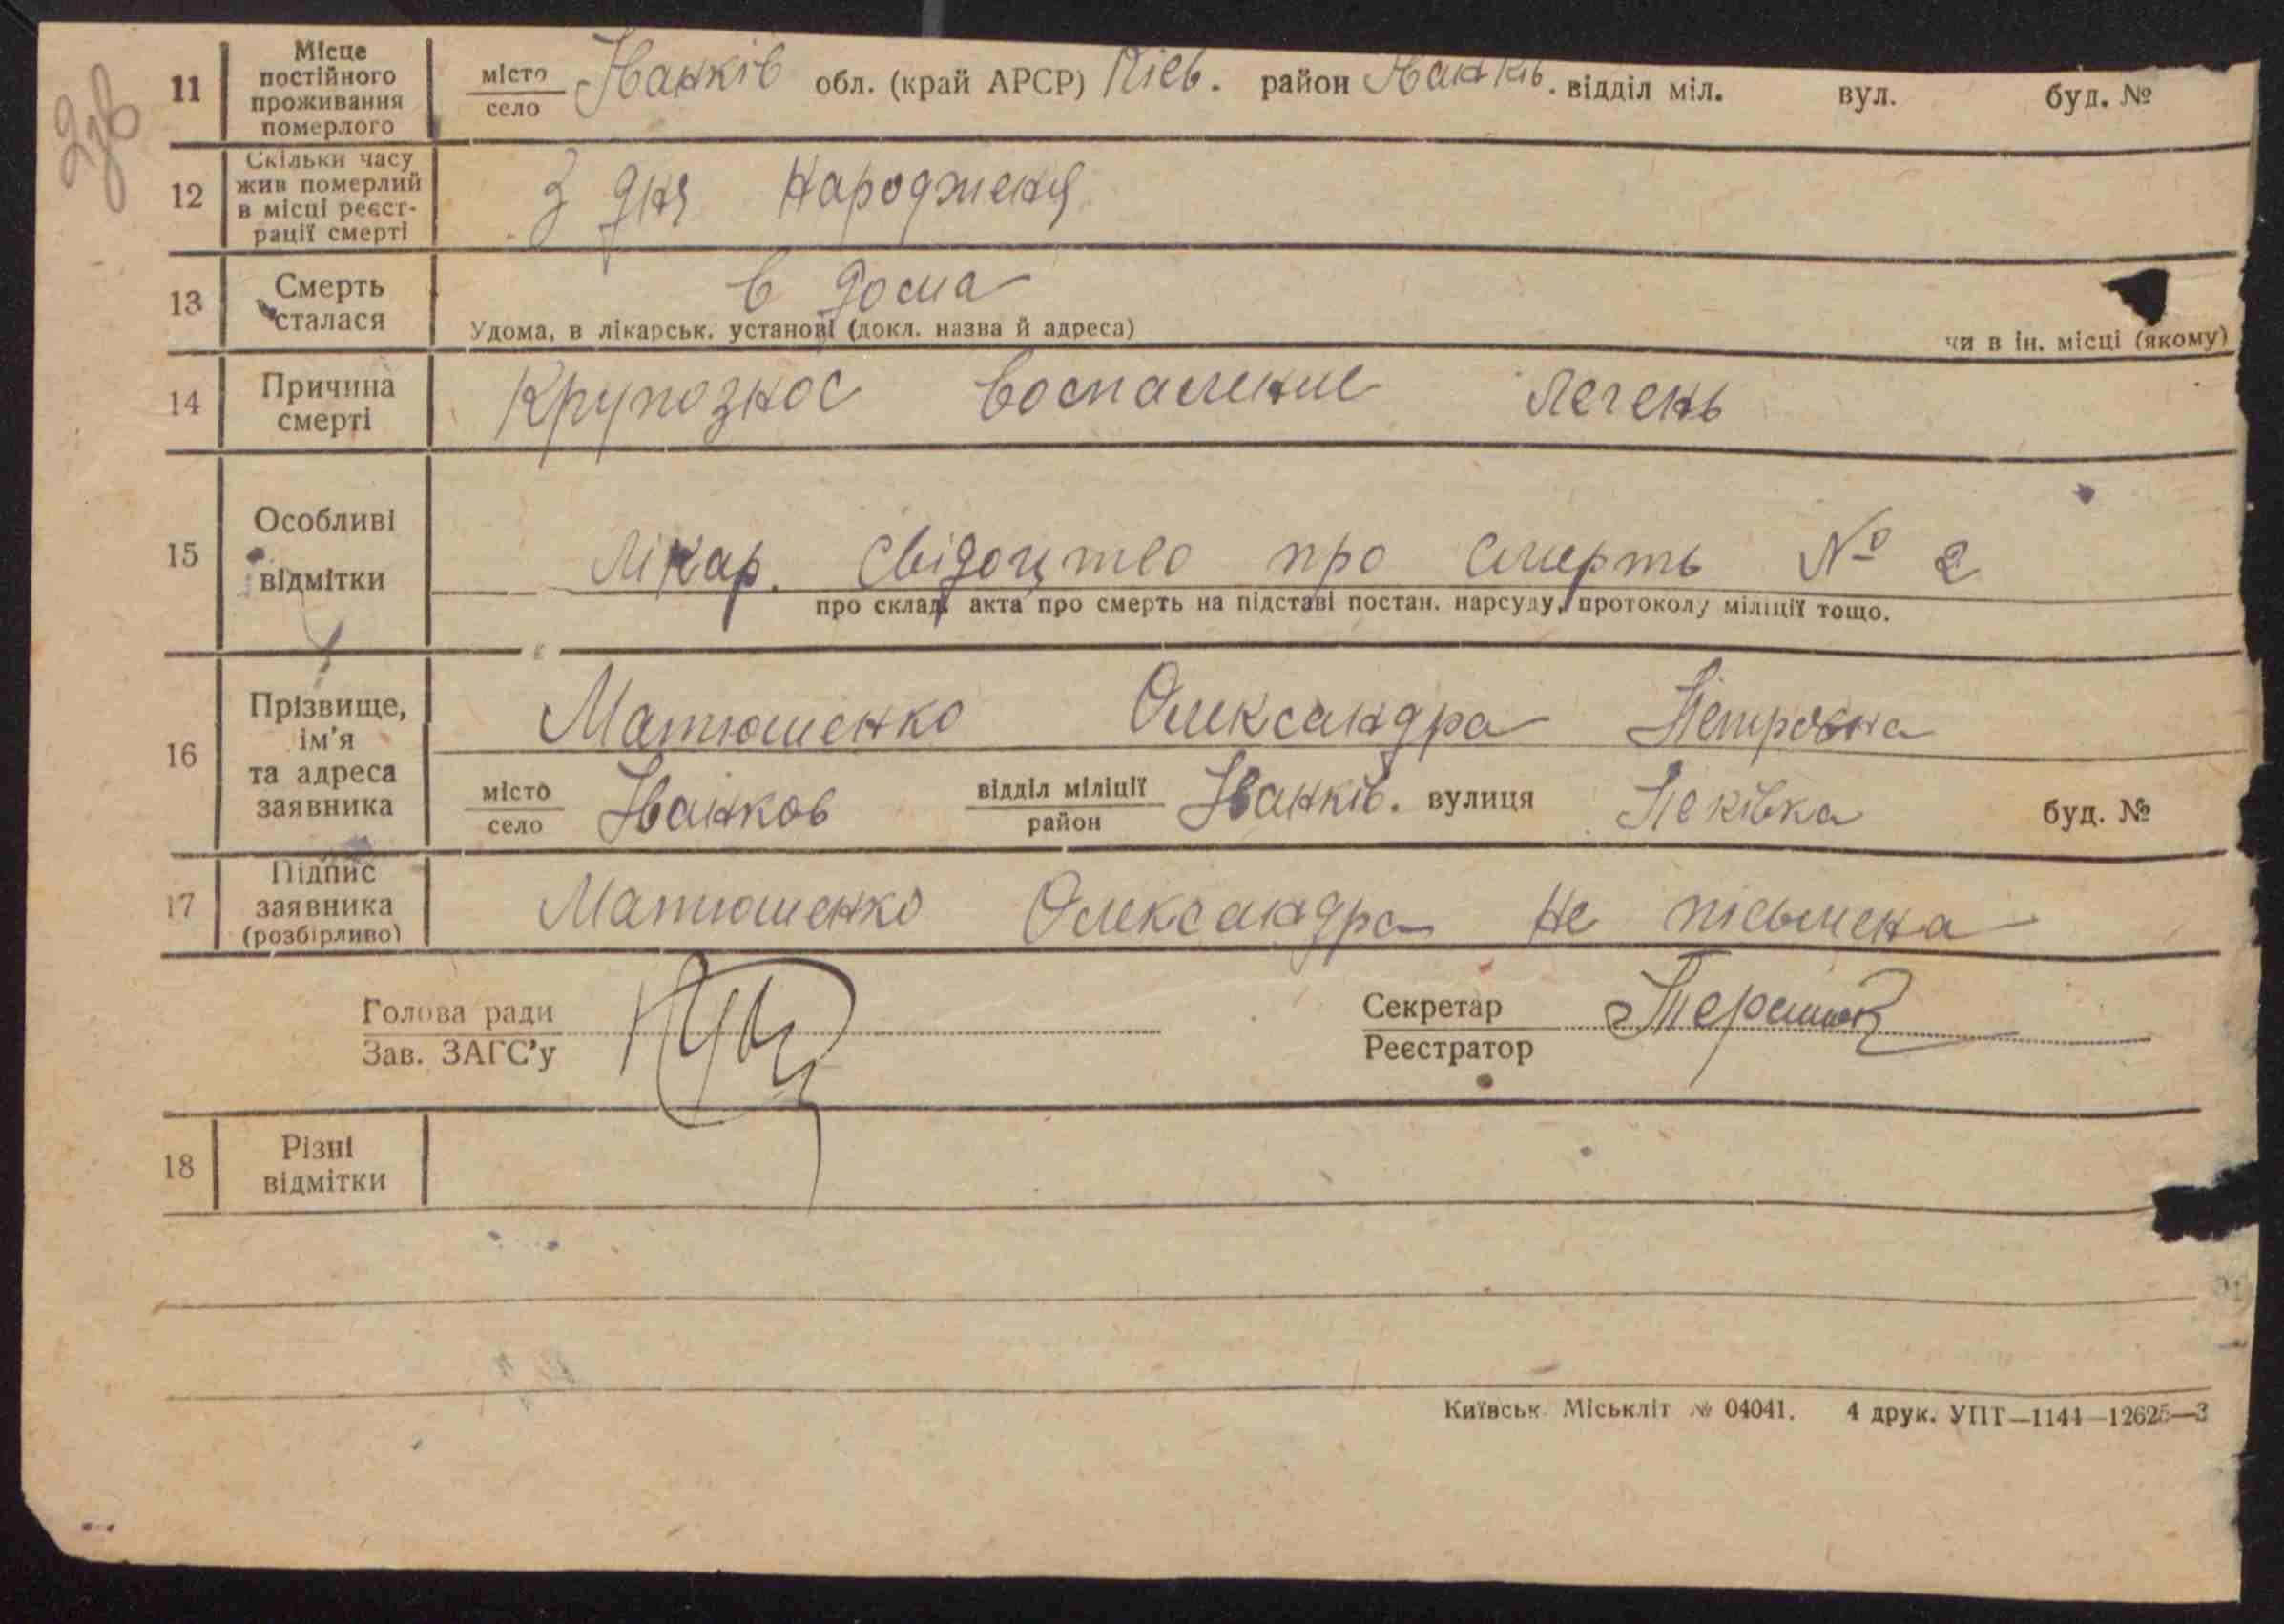 11 Місце постійного проживання померлого місто село Іванків обл. (край АРСР) Кіев. район Іванків. відділ міл. вул. буд. №
12 Скільки часу жив померлий в місці реєстрації смерті З дня народженя
13 Смерть сталася в дома
Удома, в лікарськ. установі (докл. назва й адреса) чи в ін. місці (якому)
14 Причина смерті Крупозное воспаление легень
15 Особливі відмітки Лікар. свідоцтво про смерть № 2
про склад. акта про смерть на підставі постан. нарсуду, протоколу міліції тощо.
16 Прізвище, ім'я та адреса заявника Матюшенко Олександра Петровна
місто село Іванков відділ міліції район Іванків. вулиця Пеківка буд. №
17 Підпис заявника (розбірливо) Матюшенко Олександра не письмена
Голова ради Секретар
Зав. ЗАГС'у Реєстратор
18 Різні відмітки
Київськ. Міськліт № 04041. 4 друк. УПТ—1144—12625—3